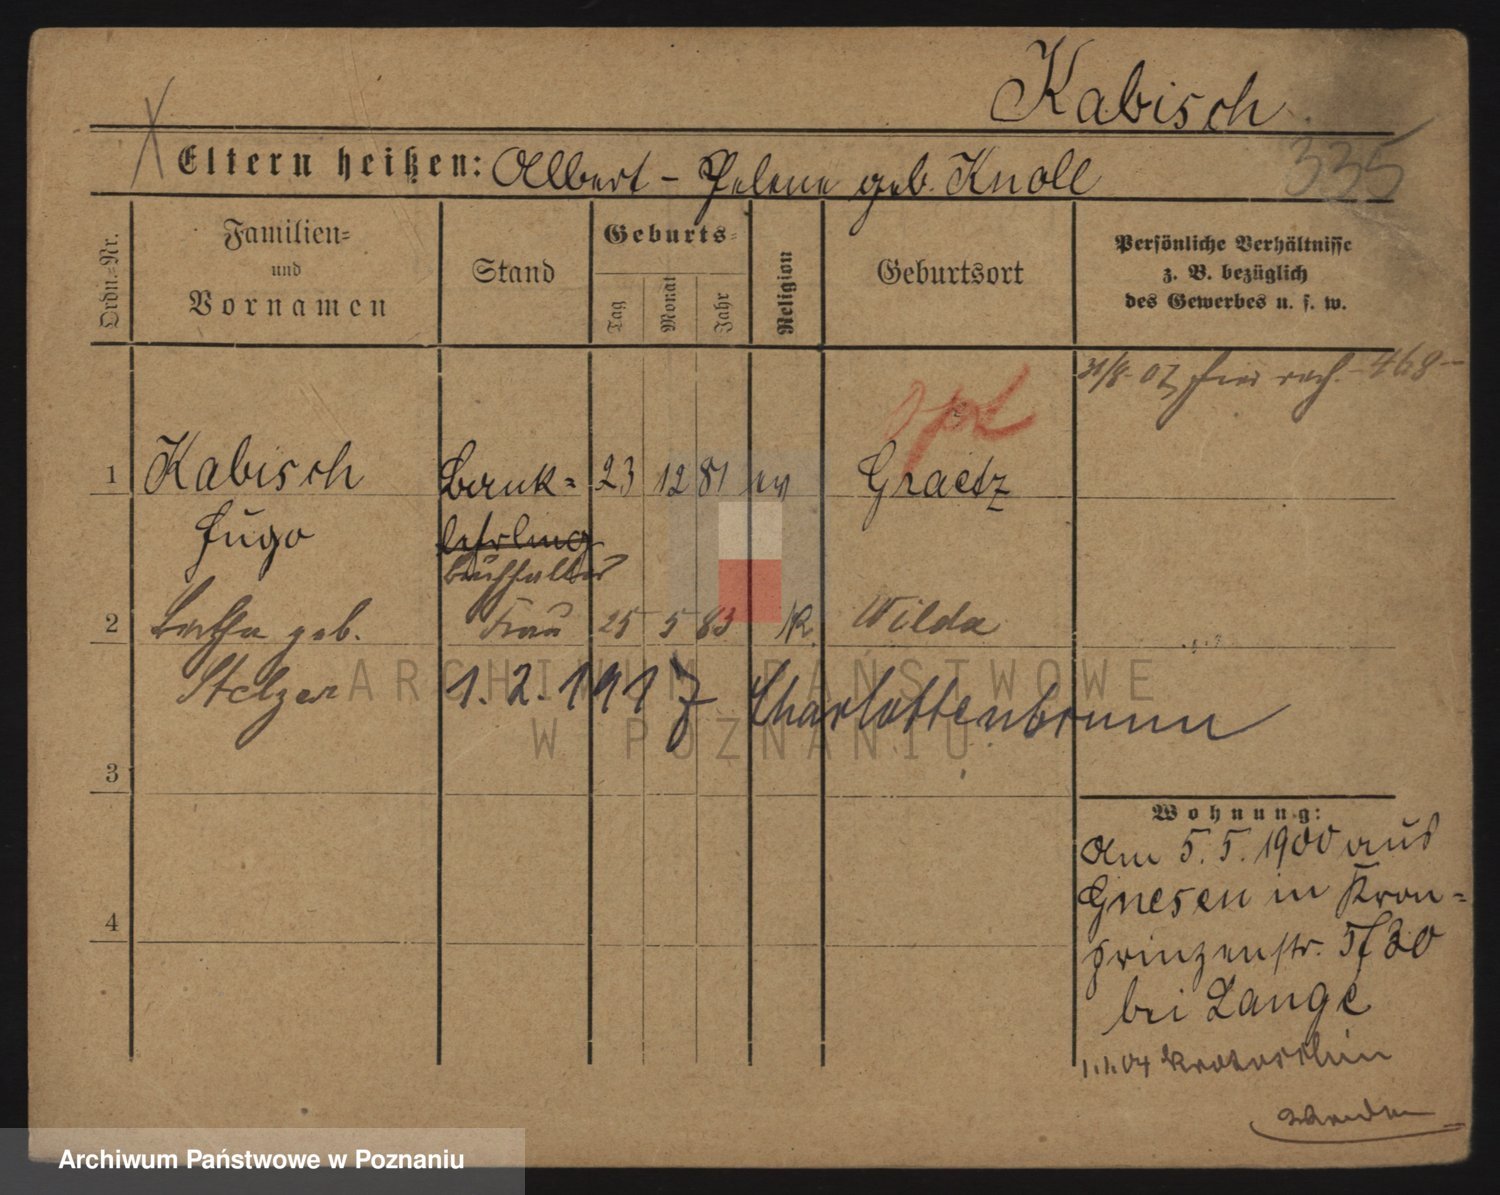 Kabisch
335
Eltern heißen: Albert – Helene geb. Knoll
Ordn.=Nr.
Familien=
und
Vornamen
Stand
Geburts=
Tag
Monat
Jahr
Religion
Geburtsort
Persönliche Verhältnisse
z. B. bezüglich
des Gewerbes u. s. w.
31/8 07 468
opt
1 Kabisch Bank= 23 12 81 ev Graetz
Hugo lehrling
Buchhalter
2 Bertha geb. Frau 25 5 83 K Wilda
Stelzer 1.2.1917 Charlottenbrunn
3
Wohnung:
Am 5.5.1900 aus
Gnesen in Kron=
prinzenstr. 5/30
bei Lange
1.1.04 Krotoschin
wenden
4
ARCHIWUM PAŃSTWOWE
W POZNANIU
Archiwum Państwowe w Poznaniu